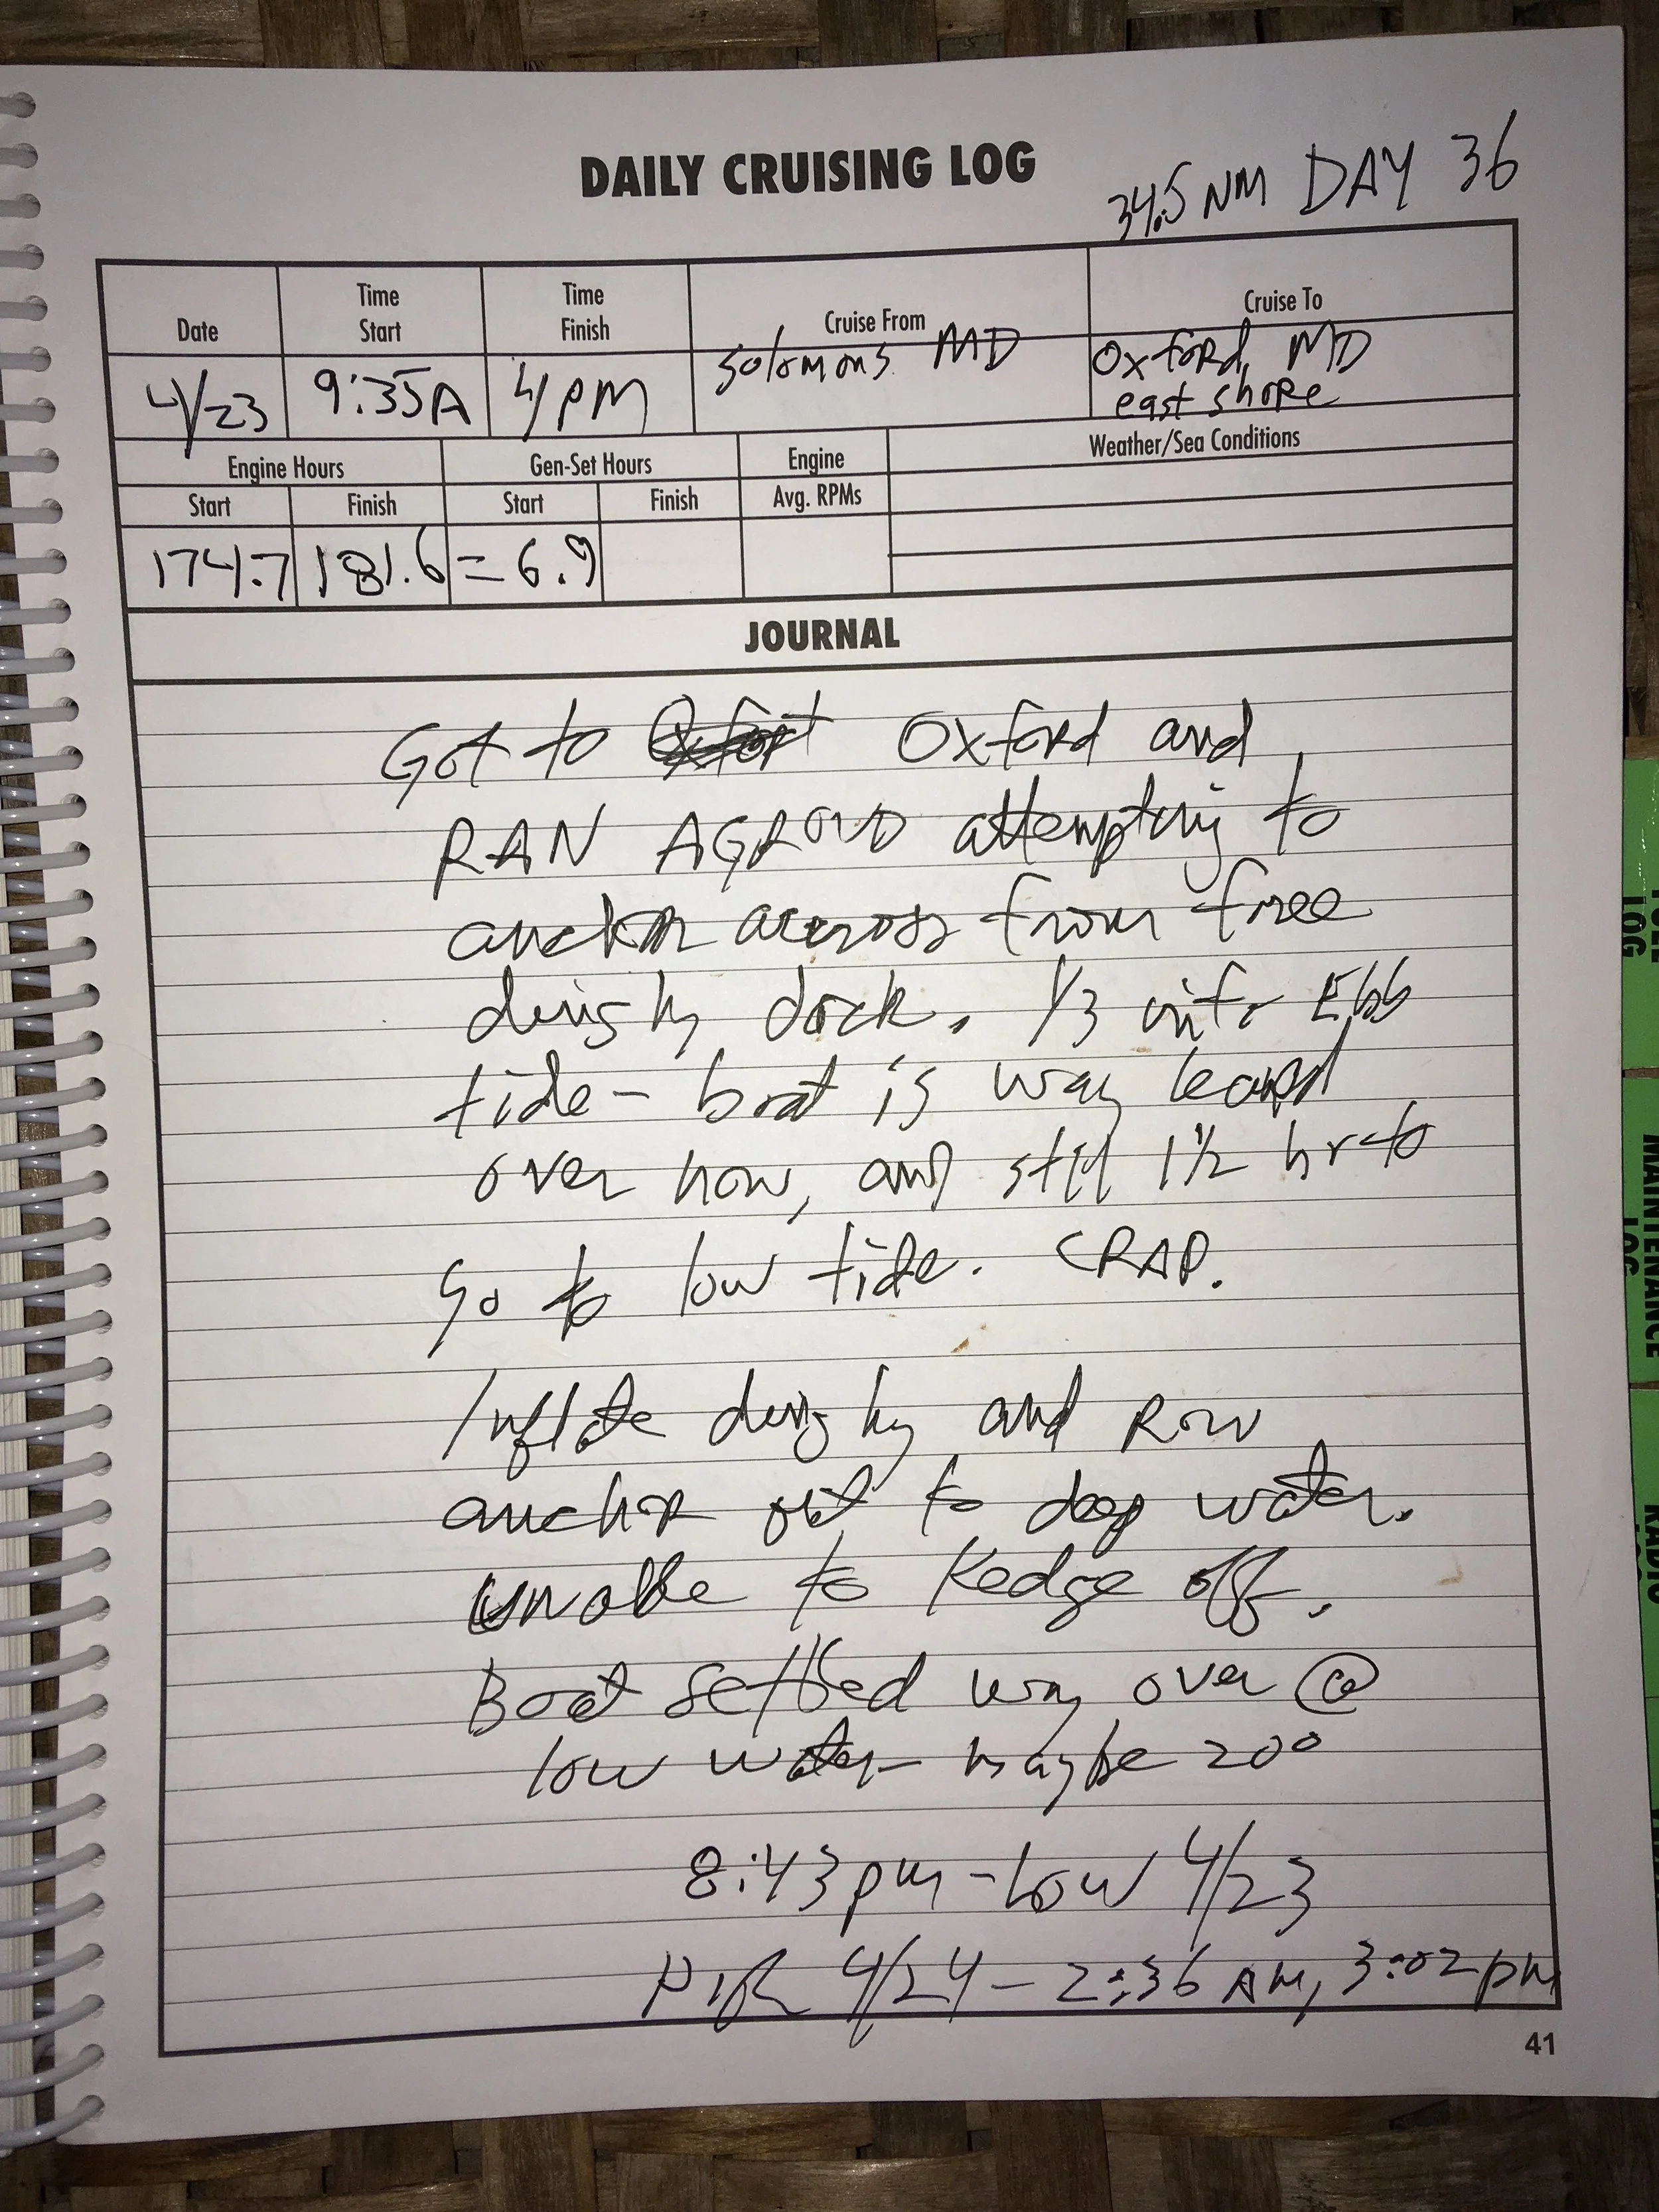 DAILY CRUISING LOG
34.5 NM DAY 36
Date
Time Start
Time Finish
Cruise From
Cruise To
4/23
9:35A
4/PM
Solomons MD
Oxford, MD
east shore
Engine Hours
Gen-Set Hours
Engine
Weather/Sea Conditions
Start
Finish
Start
Finish
Avg. RPMs
174.7
181.6
= 6.9
JOURNAL
Got to Oxford and
RAN AGROUD attempting to
anchor accross from free
dinghy dock. 1/3 into Ebb
tide - boat is way leaned
over now, and still 1½ hr to
go to low tide. CRAP.
Inflate dinghy and Row
anchor out to deep water.
unable to Kedge off.
Boat settled way over @
low water - maybe 20°
8:43pm - Low 4/23
4/24 - 2:36 AM, 3:02 pm
41
LOG
MAINTENANCE
LOG
RADIO